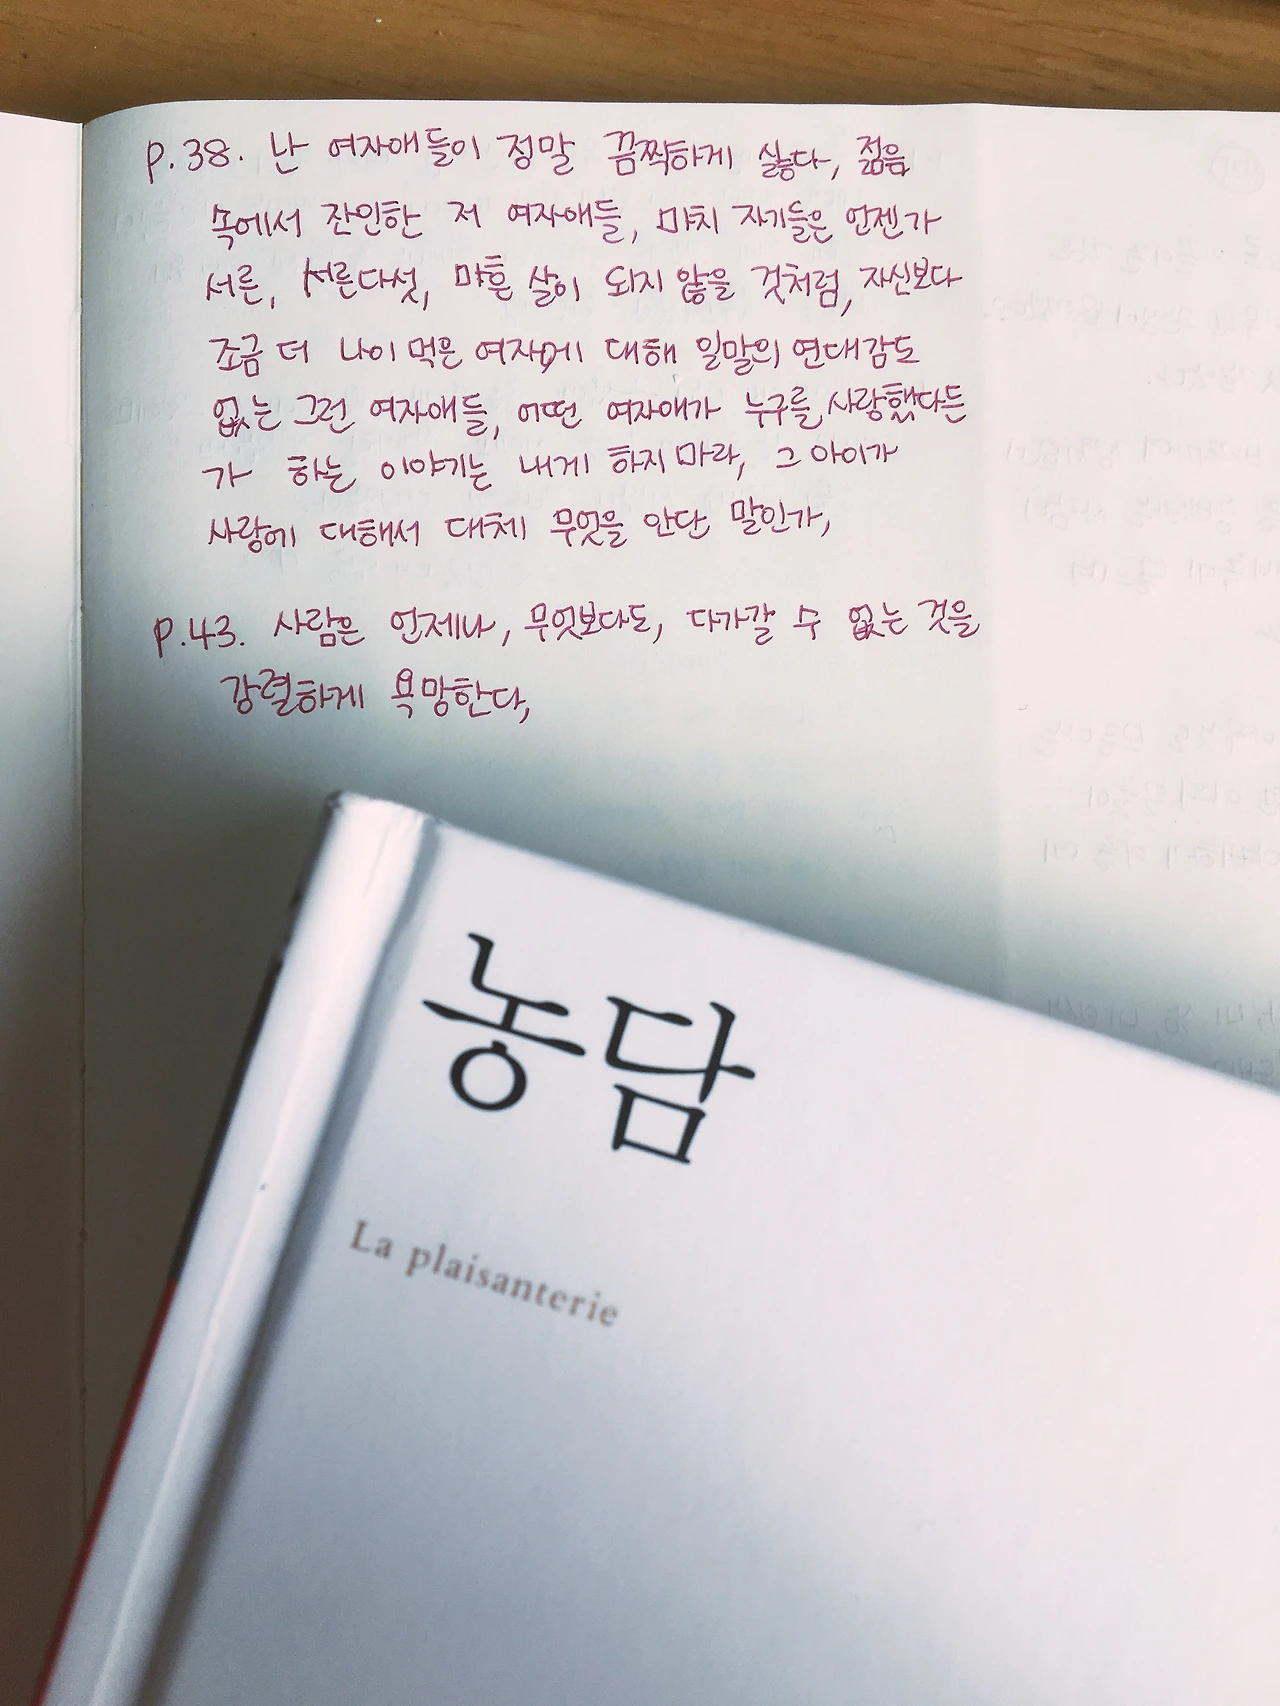 p.38. 난 여자애들이 정말 끔찍하게 싫다, 젊음
속에서 잔인한 저 여자애들, 마치 자기들은 언젠가
서른, 서른다섯, 마흔 살이 되지 않을 것처럼, 자신보다
조금 더 나이 먹은 여자에 대해 일말의 연대감도
없는 그런 여자애들, 어떤 여자애가 누구를 사랑했다든
가 하는 이야기는 내게 하지 마라, 그 아이가
사랑에 대해서 대체 무엇을 안단 말인가,
p.43. 사람은 언제나, 무엇보다도, 다가갈 수 없는 것을
강렬하게 욕망한다,
농담
La plaisanterie